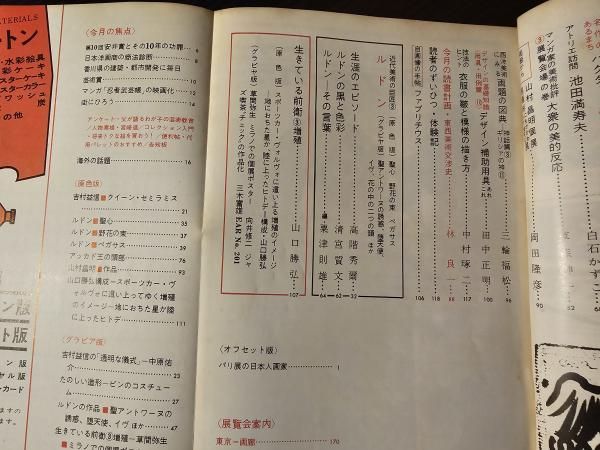 MATERIALS
ートン
・水彩絵具
彩ケーキ
スターケーキ
スターカラー
ワッシュ
炭
の他
ン版
ット版
〈今月の焦点〉
第10回安井賞とその10年の功罪… 6
日本洋画商の療法診断… 8
香川県の建築・都市開発に毎日
芸術賞… 10
マンガ「忍者武芸帳」の映画化… 12
街にひろう… 14
海外の話題… 16
〈原色版〉
吉村益信■クイーン・セミラミス
… 21
ルドン■聖心… 35
ルドン■野花の束… 37
ルドン■ペガサス… 39
アッカド王の頭部… 76
山村昌明■作品… 93
山口勝弘構成-スポーツカー・ヴ
ォルヴォに這い上ってゆく増殖
のイメージ-地におちた星か陸
に上ったヒトデ… 111
〈グラビア版〉
吉村益信の「透明な儀式」-中原佑
介… 23
たのしい造形-ピンのコスチュー
ム… 27
ルドンの作品■聖アントワーヌの
誘惑、堕天使、イヴ ほか… 47
生きている前衛③増殖-草間弥生
■ミラノでの個展ポス
名作の
あるまち
アトリエ訪問 池田満寿夫
白石かずこ
マンガ家の美術批評 大衆の美的反応
③展覧会場の巻
山村昌明個展
岡田隆彦… 90
西洋美術にみる 画題の図典 神話篇③ ギリシアの神々Ⅱ
三輪福松… 96
デザインの基礎知識 デザイン補助用具あれこれ
田中正明… 100
技法のヒント 衣服の皺と模様の描き方
中村琢二… 117
今月の読書計画・東西美術交渉史
林良一… 88
読者のずいひつ・体験記… 118
自画像の手帖/ファブリチウス… 106
近代美術の巨匠③
ルドン
〈原色版〉聖心 野花の束 ペガサス
〈グラビア版〉聖アントワーヌの誘惑、堕天使、
イヴ、花の中の二つの顔 ほか
生涯のエピソード
高階秀爾… 32
ルドンの黒と色彩
清宮質文… 62
ルドン-その言葉
編・粟津則雄… 64
生きている前衛③増殖
山口勝弘… 107
〈原色版〉スポーツカー・ヴォルヴォに這い上る増殖のイメージ
-地におちた星か陸に上ったヒトデ-構成・山口勝弘
〈グラビア版〉草間弥生 ミラノでの個展ポスター 向井修二 ジャ
ズ喫茶「チェック」の作品化 三木富雄 EAR No.201
〈オフセット版〉
パリ展の日本人画家… 1
〈展覧会案内〉
東京-画廊… 170